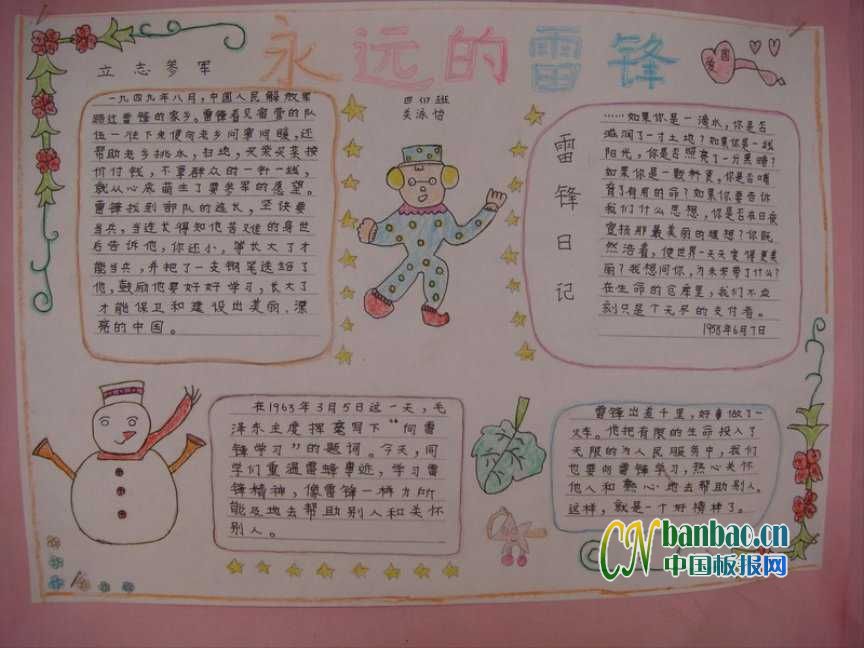 永远的雷锋
爱国
立志参军
四(4)班
关泳怡
一九四九年八月,中国人民解放军
路过雷锋的家乡。雷锋看见宿营的队
伍一往下来便向老乡问寒问暖,还
帮助老乡挑水,扫地,买柴买菜按
价付钱,不拿群众的一针一线,
就从心底萌生了要参军的愿望。
雷锋找到部队的连长,坚决要
当兵,当连长得知他苦难的身世
后告诉他,你还小,等长大了才
能当兵,并把了一支钢笔送给了
他,鼓励他要好好学习,长大了
才能保卫和建设出美丽、漂
亮的中国。
雷锋日记
……如果你是一滴水,你是否
滋润了一寸土地?如果你是一线
阳光,你是否照亮了一分黑暗?
如果你是一颗料更,你是否哺
育了有用的命?如果你要告你
我们什么思想,你是否在日夜
宣扬那最美丽的理想?你既
然活着,使世界一天天变得更美
丽?我想问你,为未来带了什么?
在生命的仓库里,我们不应
刻只是个无尽的支付者。
1958年6月7日
在1963年3月5日这一天,毛
泽东主席挥毫写下“向雷
锋学习”的题词。今天,同
学们重温雷锋事迹,学习雷
锋精神,像雷锋一样力所
能及地去帮助别人和关怀
别人。
雷锋出差千里,好事做了一
火车。他把有限的生命投入了
无限的为人民服务中,我们
也要向雷锋学习,热心关怀
他人和热心地去帮助别人。
这样,就是一个好榜样了。
CN banbao.cn
中国板报网